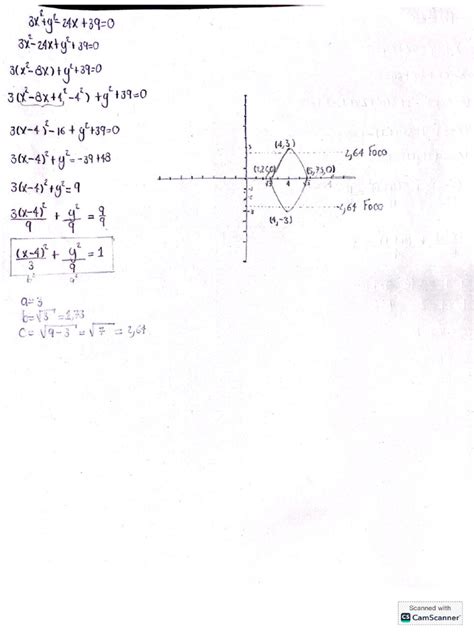 3x²+y²-24x+39=0
3x²-24x+y²+39=0
3(x²-8x)+y²+39=0
3(x²-8x+4²-4²)+y²+39=0
3(x-4)²-16+y²+39=0
3(x-4)²+y²=-39+48
3(x-4)²+y²=9
3(x-4)²/9 + y²/9 = 9/9
(x-4)²/3 + y²/9 = 1
b² a²
a=3
b=√3=1,73
c=√9-3=√7=2,64
(4,3)
2,64 Foco
(5,73,0)
4
2,64 Foco
(4,-3)
Scanned with
CS CamScanner